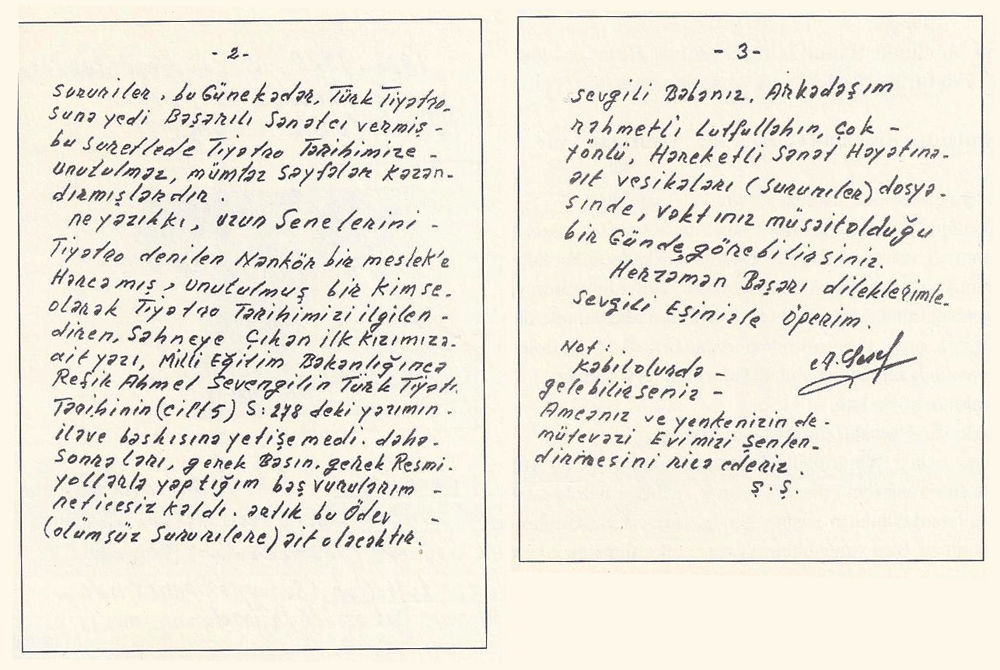 -2-
Sururiler, bu Günekadar, Türk Tiyatro-
suna yedi Başarılı Sanatcı vermiş -
bu suretlede Tiyatro Tarihimize -
unutulmaz, mümtaz Sayfalar Kazan-
dırmışlardır.
ne yazıkki, uzun Senelerini -
Tiyatro denilen Nankör bir meslek'e
Harcamış, unutulmuş bir Kimse-
olarak Tiyatro Tarihimizi ilgilen -
diren, Sahneye Çıkan ilk Kızımıza-
ait yazı, Milli Eğitim Bakanlığınca
Refik Ahmet Sevengilin Türk Tiyatr.
Tarihinin (cilt 5) S: 278 deki yazımın -
ilave baskısına yetişemedi. daha-
Sonraları, gerek Basın, gerek Resmi-
yollarla yaptığım baş vurularım -
neticesiz kaldı. artık bu Ödev -
(ölümsüz Sururilere) ait olacaktır.
-3-
sevgili Babanız, Arkadaşım
rahmetli Lutfullahın, çok -
Yönlü, Hareketli Sanat Hayatına-
ait vesikaları (Sururiler) dosya-
sında, vaktınız müsaitolduğu
bir Günde görebilirsiniz.
Herzaman Başarı dileklerimle-
sevgili Eşinizle Öperim.
Not..
Kabilolurda -
gelebilirseniz -
Amcanız ve yenkenizin de-
mütevazi Evimizi Şenlen-
dirmesini rica ederiz -
Ş.Ş.